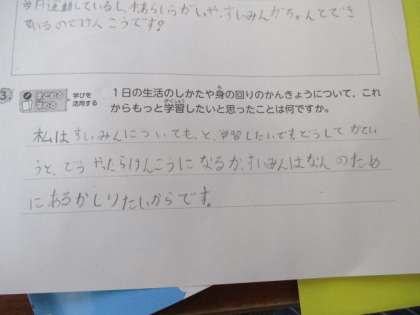 毎月運動しているし、
いるのでけんこうです!
3.
学びを
活用する
1日の生活のしかたや身の回りのかんきょうについて、これ
からもっと学習したいと思ったことは何ですか。
私はすいみんについても、と、学習したいです。どうして かとい
うと、どうやったらけんこうになるか、すいみんはなんのため
にあるかしりたいからです。